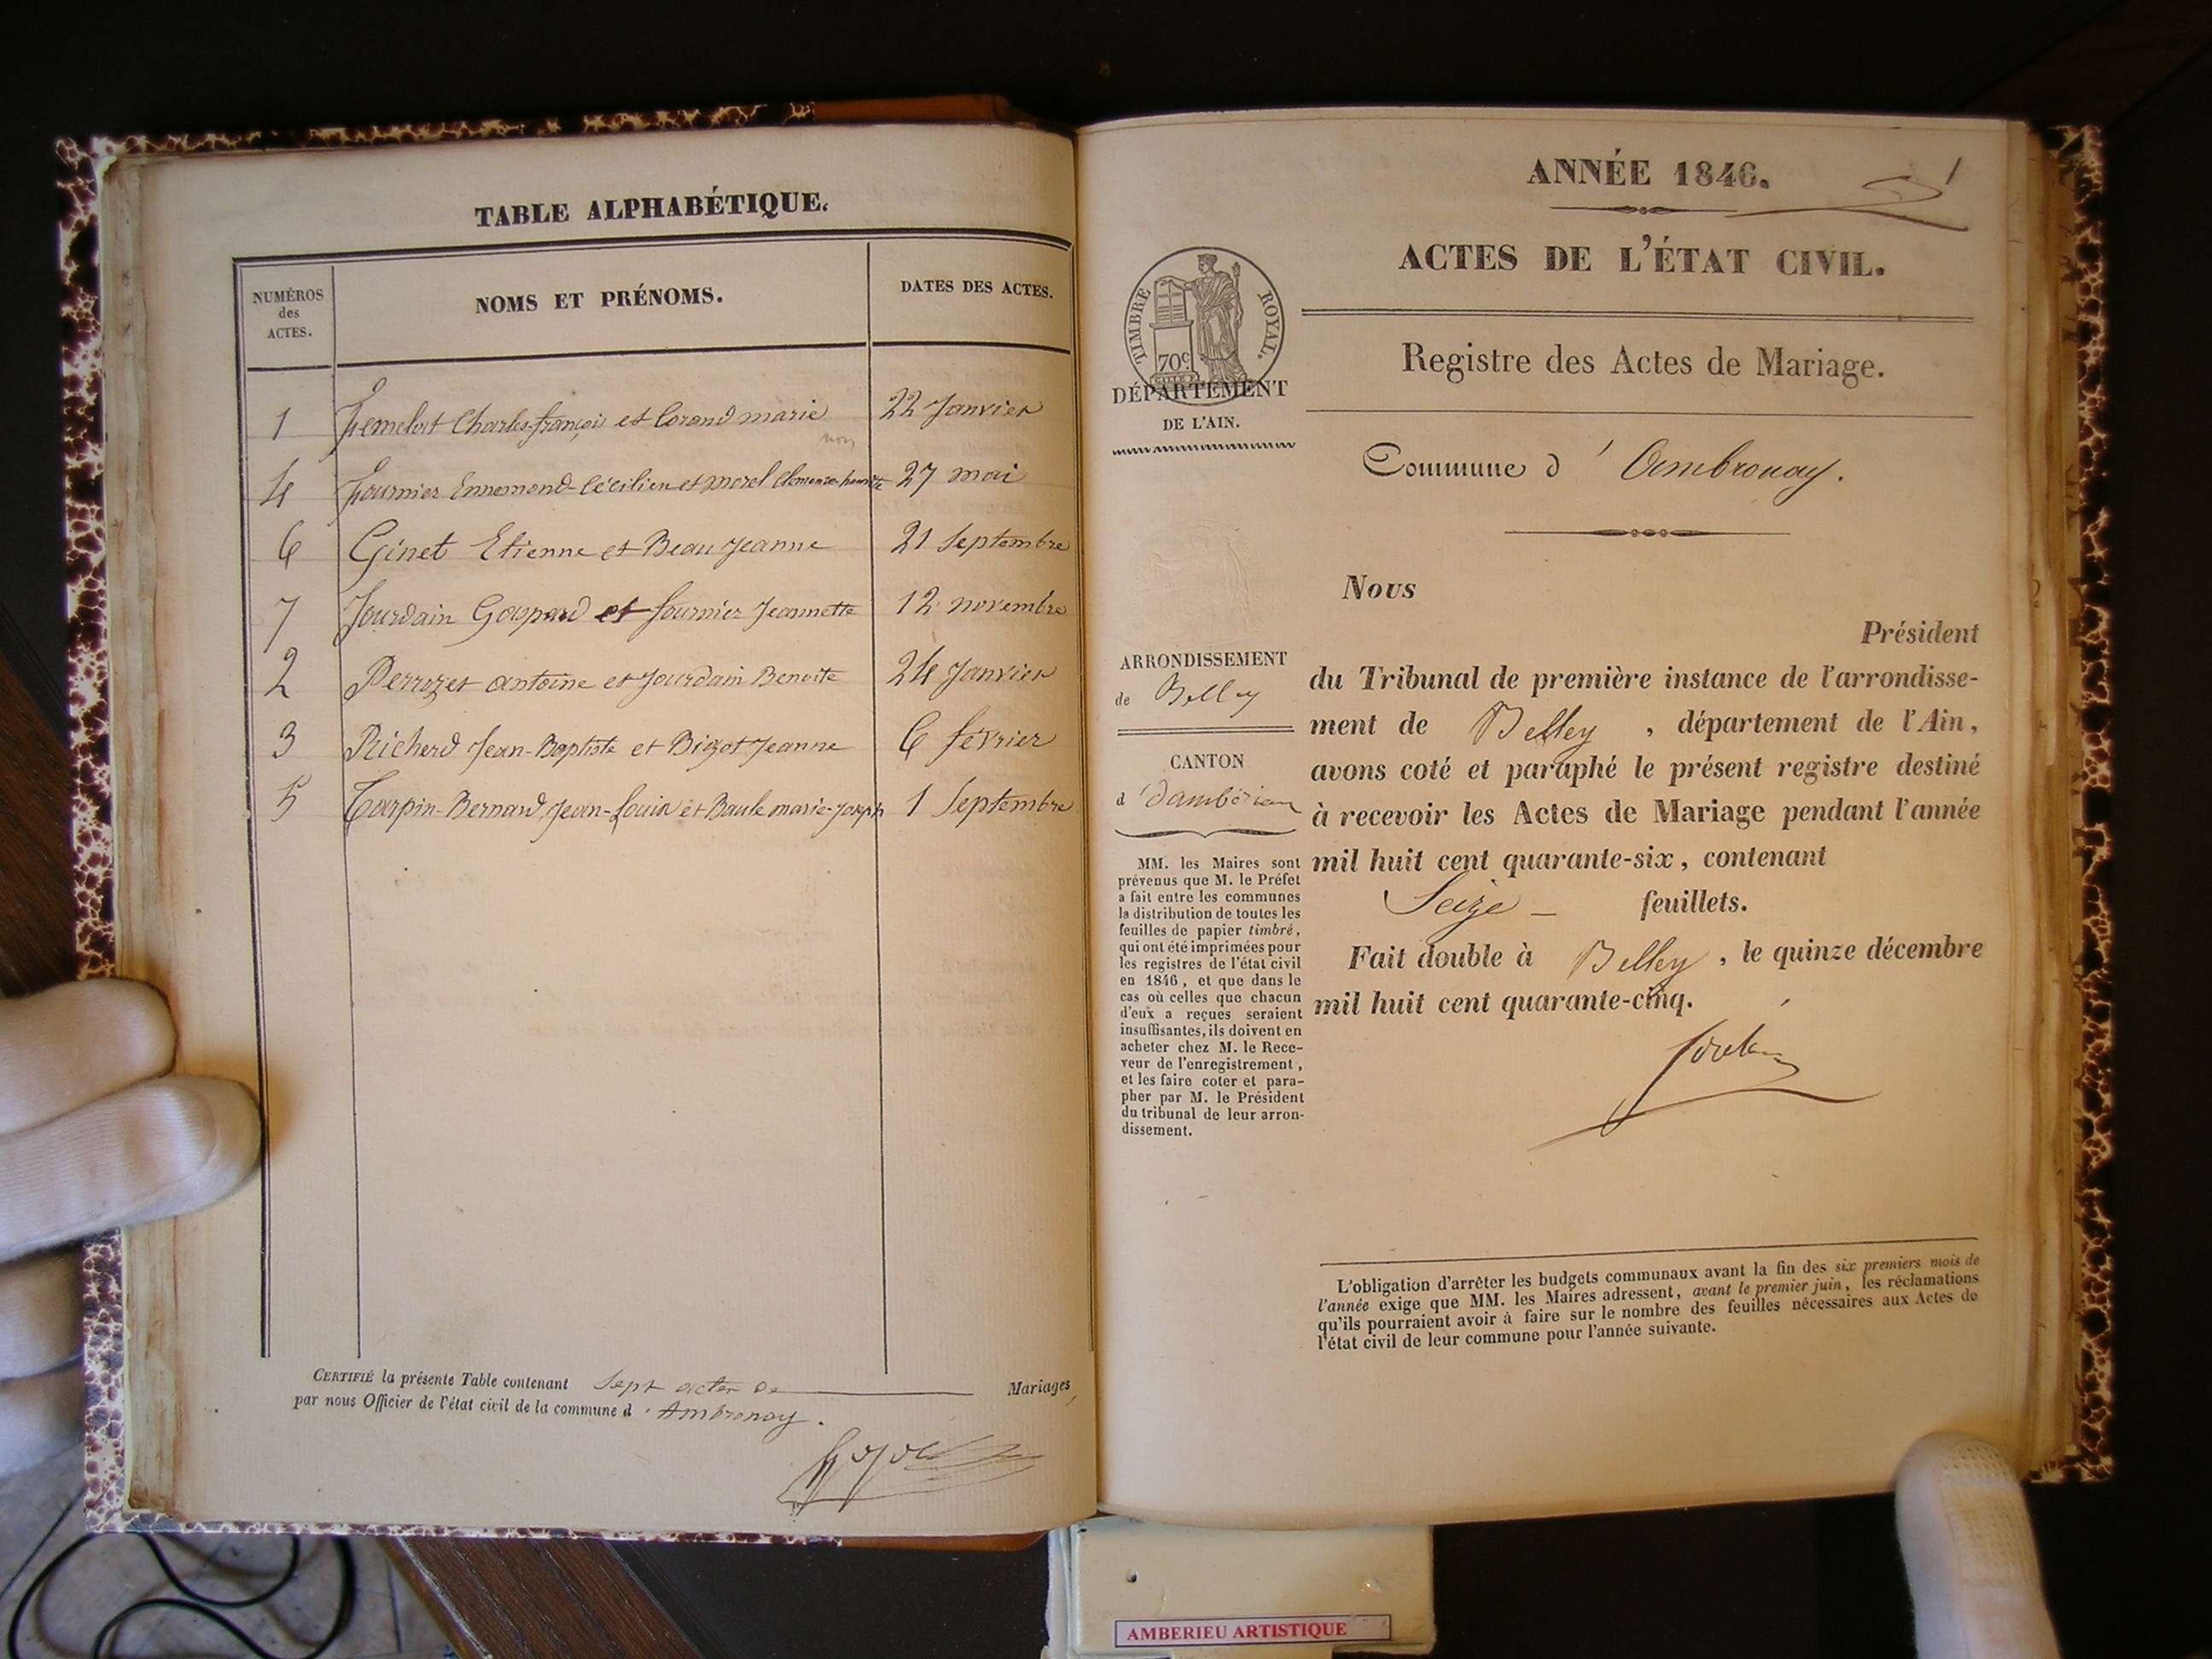 TABLE ALPHABÉTIQUE.
NUMÉROS
des
ACTES.
NOMS ET PRÉNOMS.
DATES DES ACTES.
1 Charles-françois et marie 22 Janvier
4 fournier Ennemond-Cécilien et morel Clemence 27 mai
6 Ginet Etienne et Beau Jeanne 21 Septembre
7 Jourdain Gaspard et fournier Jeannette 12 novembre
2 Perrozet antoine et Jourdain Benoite 24 Janvier
3 Richerd Jean-Baptiste et Bizot Jeanne 6 février
5 Carpin-Bernard Jean-Louis et marie-Joseph 1 Septembre
CERTIFIÉ la présente Table contenant Sept actes de Mariages,
par nous Officier de l'état civil de la commune d'Ambronay.
ANNÉE 1846.
1
ACTES DE L'ÉTAT CIVIL.
TIMBRE ROYAL.
70c
DÉPARTEMENT
DE L'AIN.
Registre des Actes de Mariage.
Commune d'Ambronay.
ARRONDISSEMENT
de Belley
CANTON
d'
MM. les Maires sont
prévenus que M. le Préfet
a fait entre les communes
la distribution de toutes les
feuilles de papier timbré,
qui ont été imprimées pour
les registres de l'état civil
en 1846, et que dans le
cas où celles que chacun
d'eux a reçues seraient
insuffisantes, ils doivent en
acheter chez M. le Rece-
veur de l'enregistrement,
et les faire coter et para-
pher par M. le Président
du tribunal de leur arron-
dissement.
Nous
Président
du Tribunal de première instance de l'arrondisse-
ment de Belley, département de l'Ain,
avons coté et paraphé le présent registre destiné
à recevoir les Actes de Mariage pendant l'année
mil huit cent quarante-six, contenant
Seize feuillets.
Fait double à Belley, le quinze décembre
mil huit cent quarante-cinq.
L'obligation d'arrêter les budgets communaux avant la fin des six premiers mois de
l'année exige que MM. les Maires adressent, avant le premier juin, les réclamations
qu'ils pourraient avoir à faire sur le nombre des feuilles nécessaires aux Actes de
l'état civil de leur commune pour l'année suivante.
AMBERIEU ARTISTIQUE